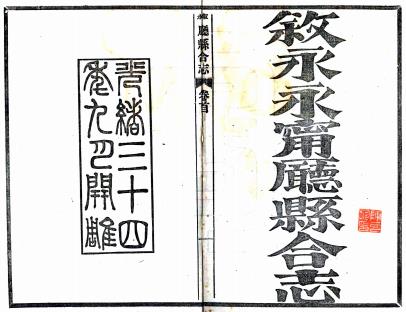 敘永永甯廳縣合志
廳縣合志
卷首
光緒三十四
年九月開雕